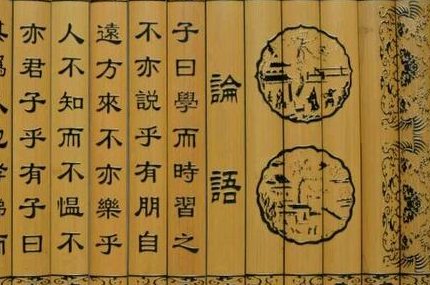 論語
子曰學而時習之
不亦説乎有朋自
遠方來不亦樂乎
人不知而不慍不
亦君子乎有子曰
其為人也孝弟而